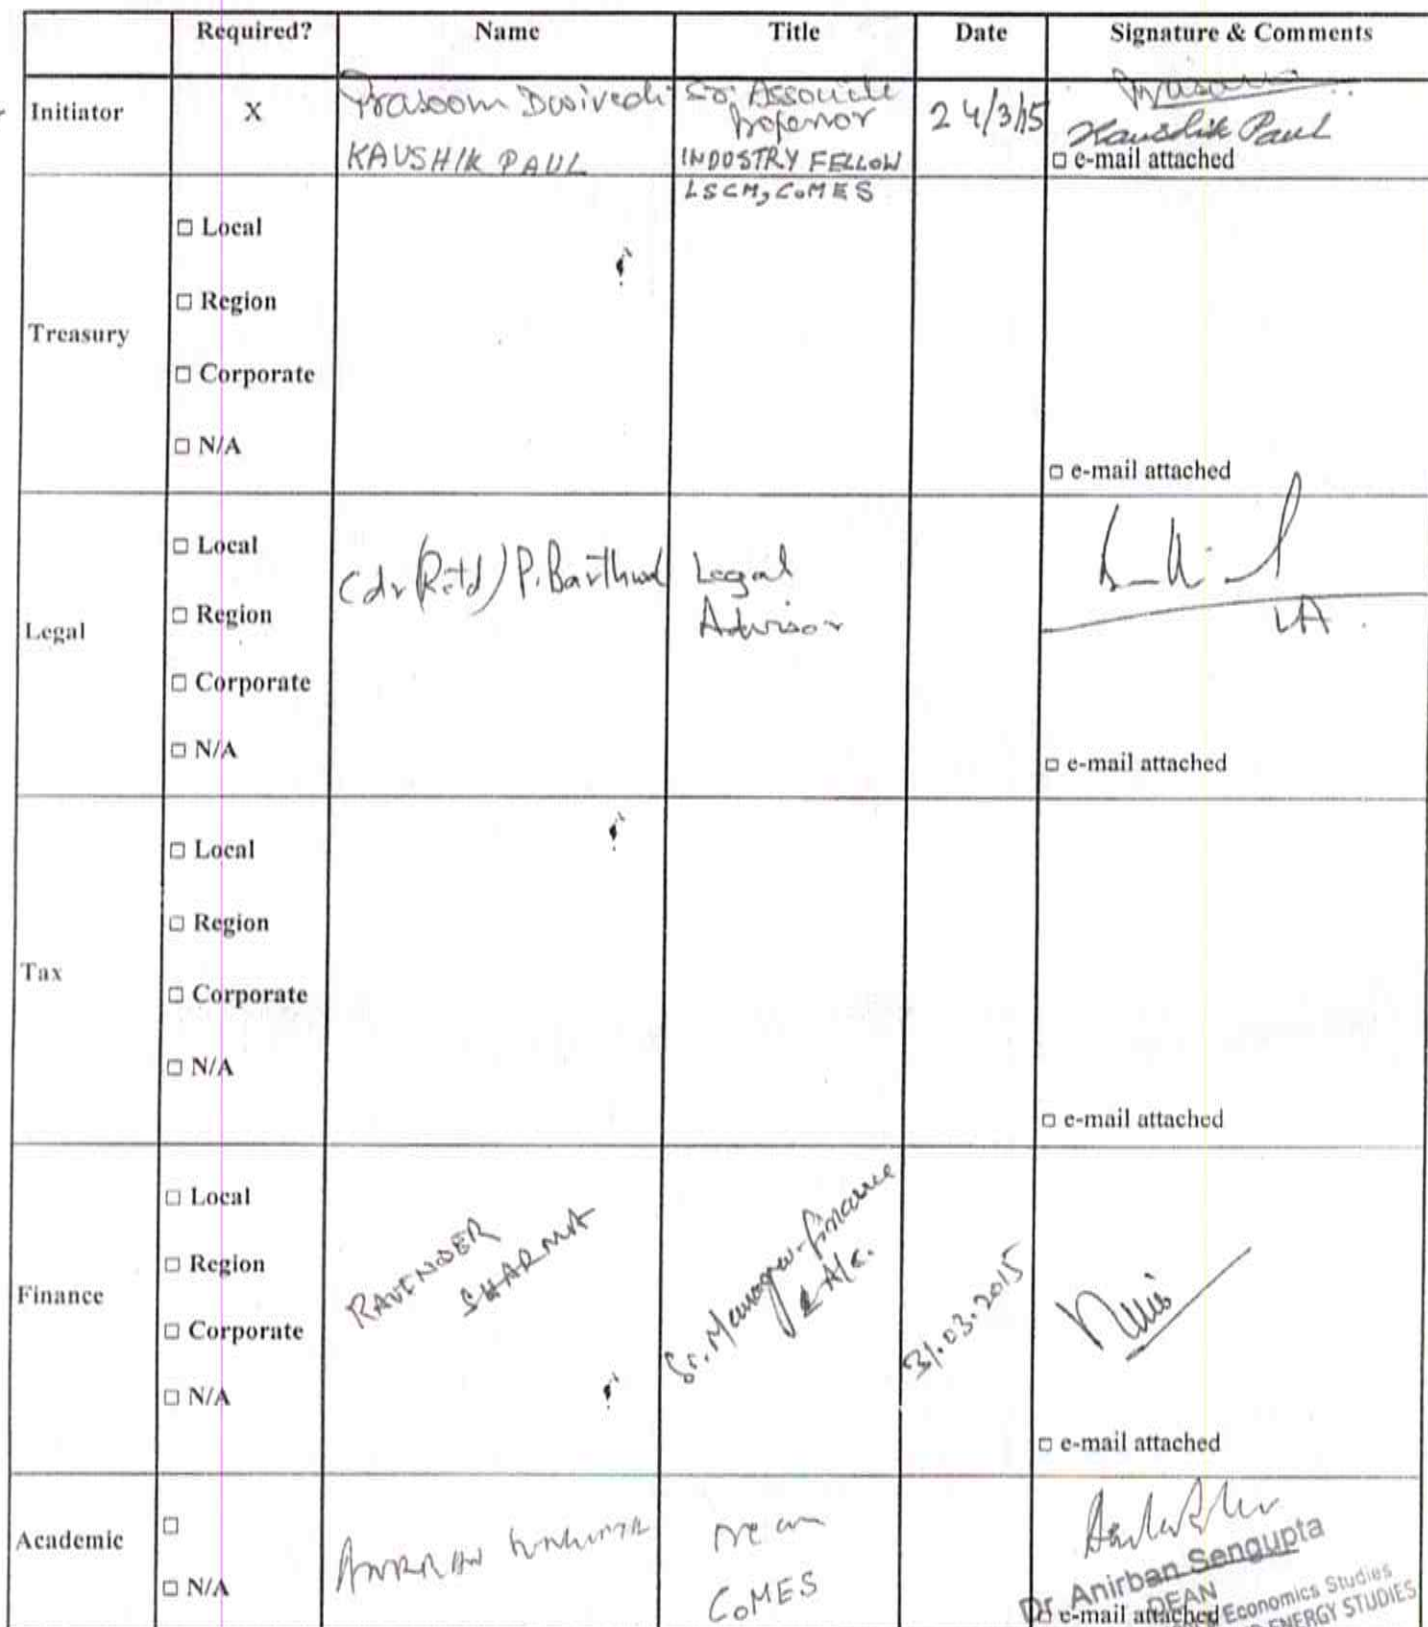 Required? Name Title Date Signature & Comments
Initiator X Prasoom Dwivedi Sr. Associate Professor 24/3/15
KAUSHIK PAUL INDUSTRY FELLOW Kaushik Paul
LSCM, CoMES
□ e-mail attached
Treasury
□ Local
□ Region
□ Corporate
□ N/A
□ e-mail attached
Legal
□ Local
□ Region
□ Corporate
□ N/A
Cdr (Retd) P. Barthwal
Legal
Advisor
LA.
□ e-mail attached
Tax
□ Local
□ Region
□ Corporate
□ N/A
□ e-mail attached
Finance
□ Local
□ Region
□ Corporate
□ N/A
RAVENDER
SHARMA
Sr. Manager-finance
& A/c.
31.03.2015
□ e-mail attached
Academic
□
□ N/A
Dean
CoMES
Dr. Anirban Sengupta
DEAN
Economics Studies
ENERGY STUDIES
□ e-mail attached